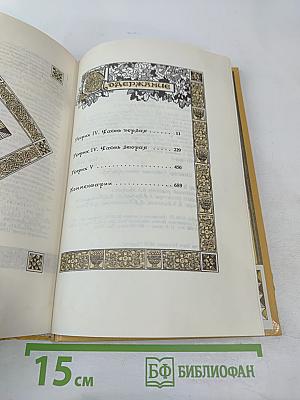 СОДЕРЖАНИЕ
Генрих IV. Часть первая ...... 11
Генрих IV. Часть вторая ...... 219
Генрих V ............ 430
Комментарии ............ 689
15 см
БФ БИБЛИОФАН